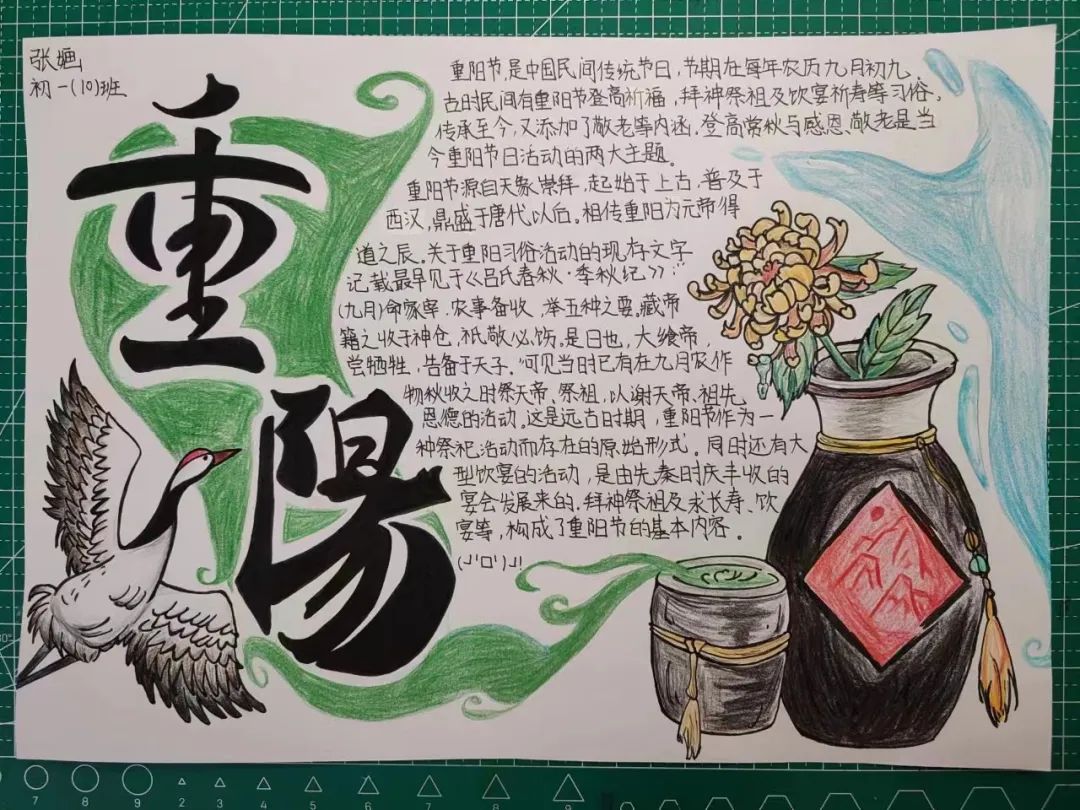 张婳
初一(10)班
重陽
重阳节,是中国民间传统节日,节期在每年农历九月初九、
古时民间有重阳节登高祈福,拜神祭祖及饮宴祈寿等习俗。
传承至今,又添加了敬老等内涵。登高赏秋与感恩、敬老是当
今重阳节日活动的两大主题。
重阳节源自天象崇拜,起始于上古,普及于
西汉,鼎盛于唐代以后。相传重阳为元帝得
道之辰。关于重阳习俗活动的现存文字
记载最早见于《吕氏春秋·季秋纪》:“
(九月)命家宰,农事备收,举五种之要。藏帝
籍之收于神仓,祇敬必饬。是日也,大飨帝,
尝牺牲,告备于天子。”可见当时已有在九月农作
物秋收之时祭天帝、祭祖,以谢天帝、祖先
恩德的活动。这是远古时期,重阳节作为一
种祭祀活动而存在的原始形式。同时还有大
型饮宴的活动,是由先秦时庆丰收的
宴会发展来的。拜神祭祖及求长寿、饮
宴等,构成了重阳节的基本内容。
7
8
9
2
3
4
5
6
7
8
9